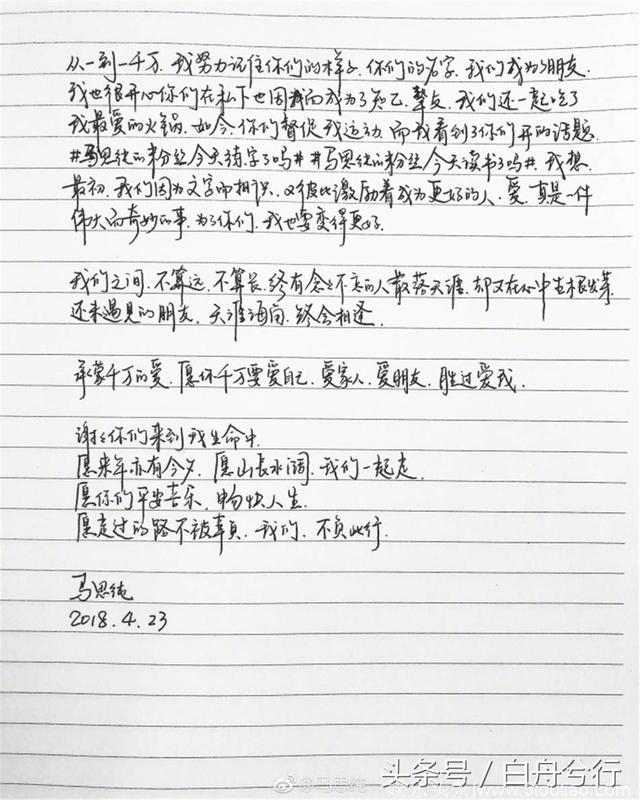 从一到一千万.我努力记住你们的样子.你们的名字.我们成为了朋友.
我也很开心你们在私下也因我而成为了知己.挚友.我们还一起吃了
我最爱的火锅.如今.你们督促我运动.而我看到了你们开的话题.
#马思纯的粉丝今天练字了吗# #马思纯的粉丝今天读书了吗#.我想.
最初.我们因为文字而相识.又彼此激励着成为更好的人.爱.真是一件
伟大而奇妙的事.为了你们.我也要变得更好.
我们之间.不算远.不算长.终有念念不忘的人散落天涯.却又在心中生根发芽.
还未遇见的朋友.天涯海角.终会相逢.
承蒙千万的爱.愿你千万要爱自己.爱家人.爱朋友.胜过爱我.
谢谢你们来到我生命中.
愿来年亦有今夕.愿山长水阔.我们一起走.
愿你们平安喜乐.畅快人生.
愿走过的路不被辜负.我们.不负此行.
马思纯
2018.4.23
@马思纯
头条号/白舟兮行